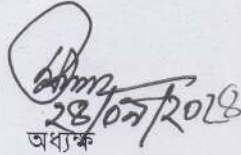 ২৪/০৯/২০২৪
অধ্যক্ষ